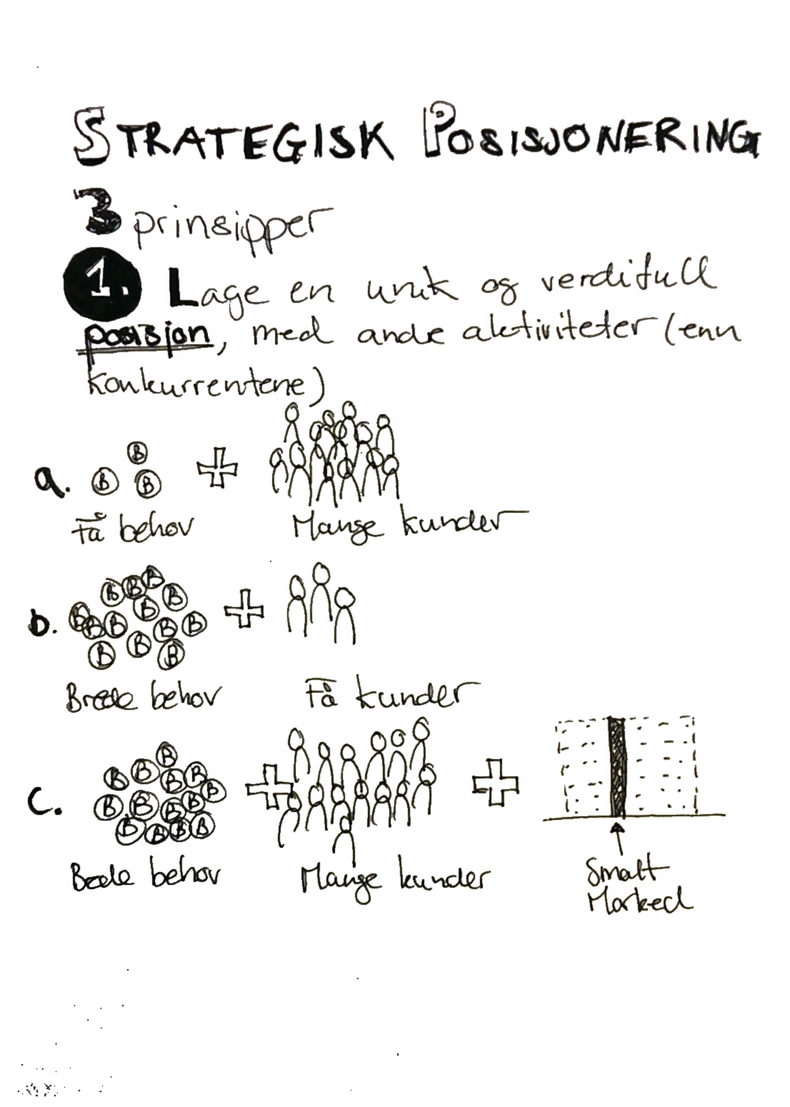 STRATEGISK POSISJONERING
3 prinsipper
1. Lage en unik og verdifull
posisjon, med andre aktiviteter (enn
konkurrentene)
a. B B B +
Få behov Mange kunder
b. B B B B B B B B B B B B B +
Brede behov Få kunder
c. B B B B B B B B B B B B B B + +
Brede behov Mange kunder
Smalt
Marked